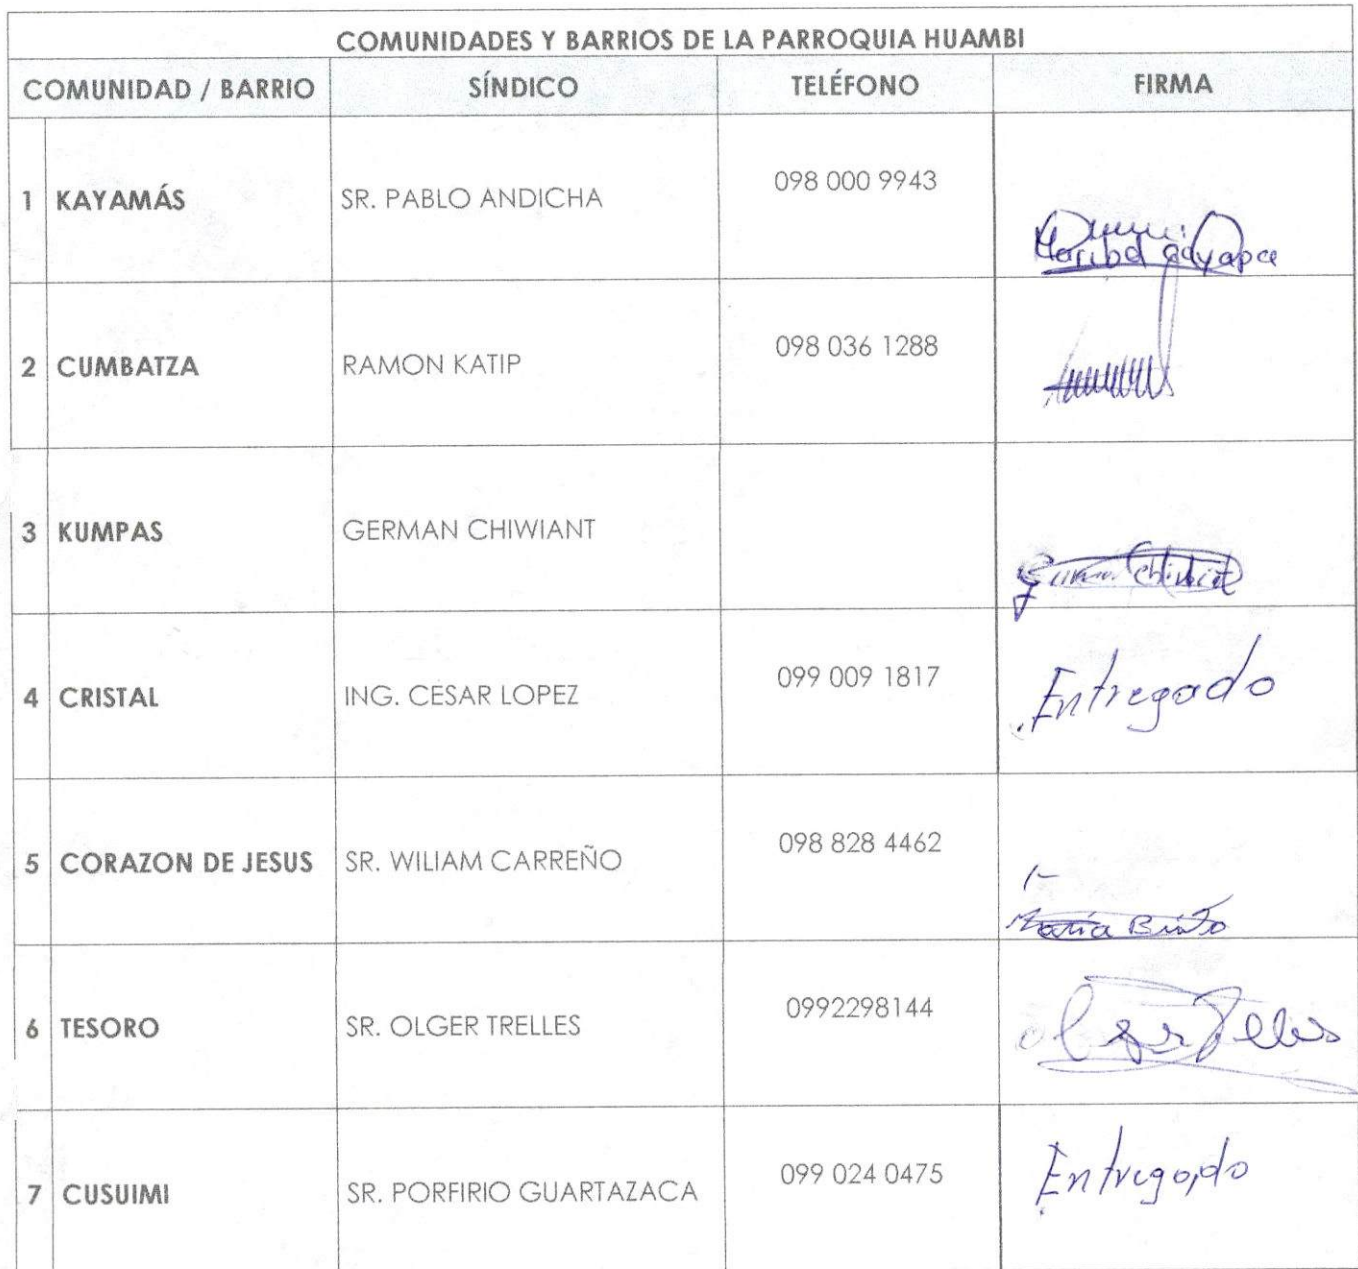 COMUNIDADES Y BARRIOS DE LA PARROQUIA HUAMBI
COMUNIDAD / BARRIO SÍNDICO TELÉFONO FIRMA
1 KAYAMÁS SR. PABLO ANDICHA 098 000 9943
Maribel
2 CUMBATZA RAMON KATIP 098 036 1288
3 KUMPAS GERMAN CHIWIANT
4 CRISTAL ING. CESAR LOPEZ 099 009 1817 Entregado
5 CORAZON DE JESUS SR. WILIAM CARREÑO 098 828 4462
María
6 TESORO SR. OLGER TRELLES 0992298144 Olger Trelles
7 CUSUIMI SR. PORFIRIO GUARTAZACA 099 024 0475 Entregado